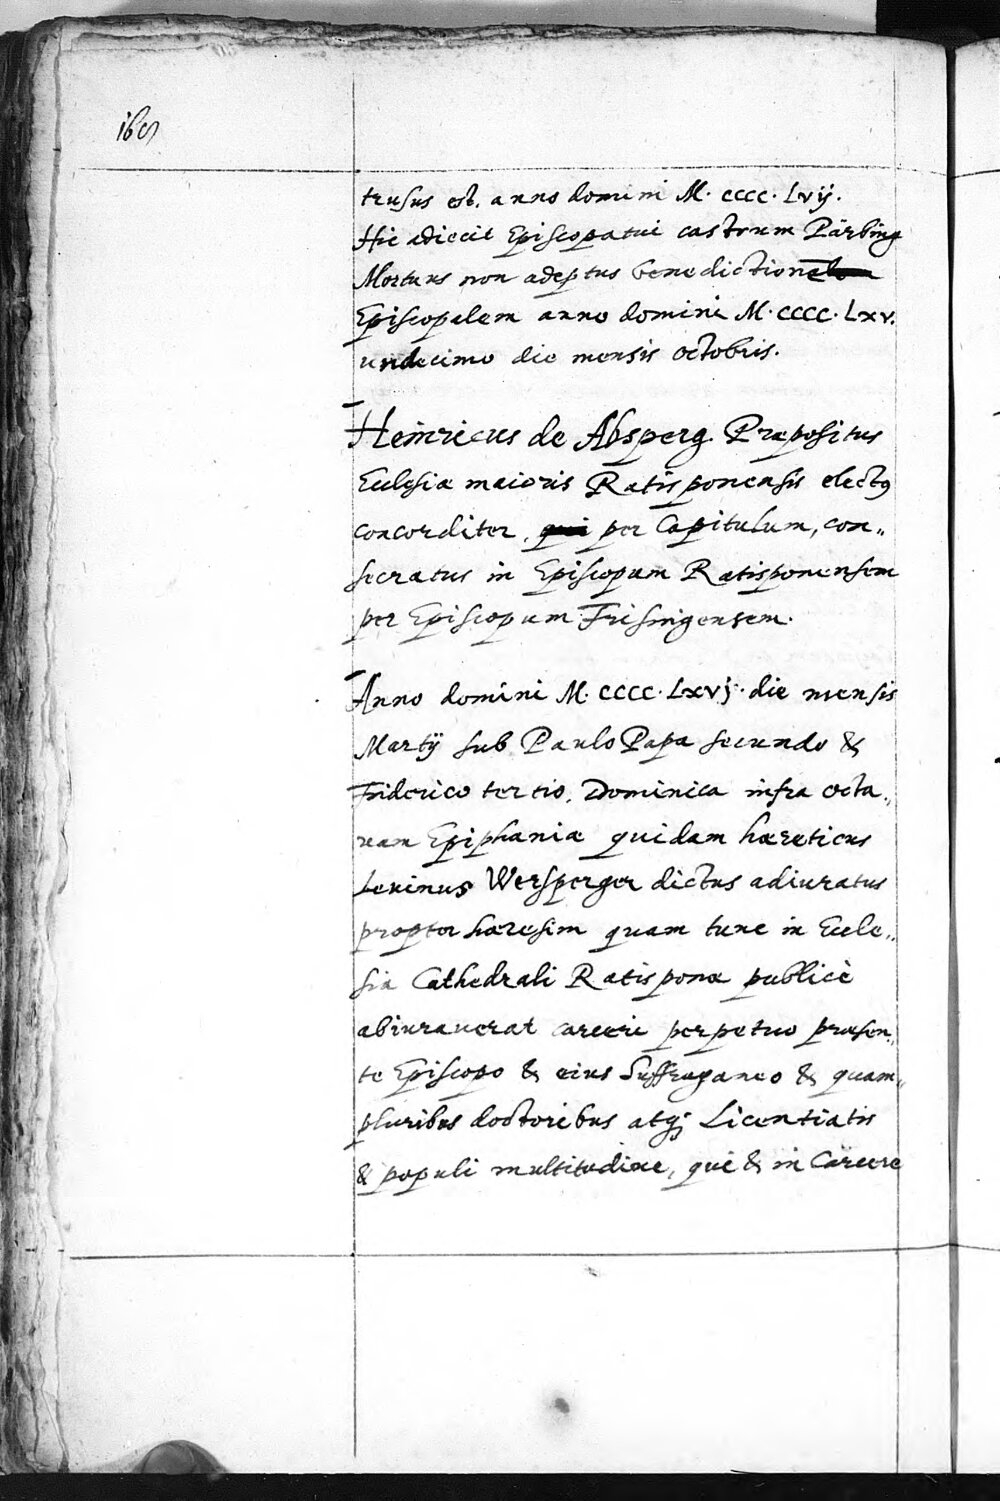 trusus est. anno domini M. CCCC. Lvij.
Hic adiecit Episcopatui castrum Pärbing
Mortuus non adeptus benedictione
Episcopalem anno domini M. CCCC. Lxv.
undecimo die mensis octobris.
Heinricus de Absperg. Præpositus
Ecclesiæ maioris Ratisponensis electus
concorditer, per Capitulum, con„
secratus in Episcopum Ratisponensem
per Episcopum Frisingensem.
Anno domini M. CCCC. Lxvj. die mensis
Martij sub Paulo Papa secundo &
Friderico tertio. Dominica infra octa„
uam Epiphaniæ quidam hæreticus
Leuinus Wersperger dictus adiuratus
propter hæresim quam tunc in Eccle„
sia Cathedrali Ratisponæ publicè
abiurauerat carceri perpetuo præsen„
te Episcopo & eius Suffraganeo & quam„
pluribus doctoribus atq; Licentiatis
& populi multitudine, qui & in Carcere